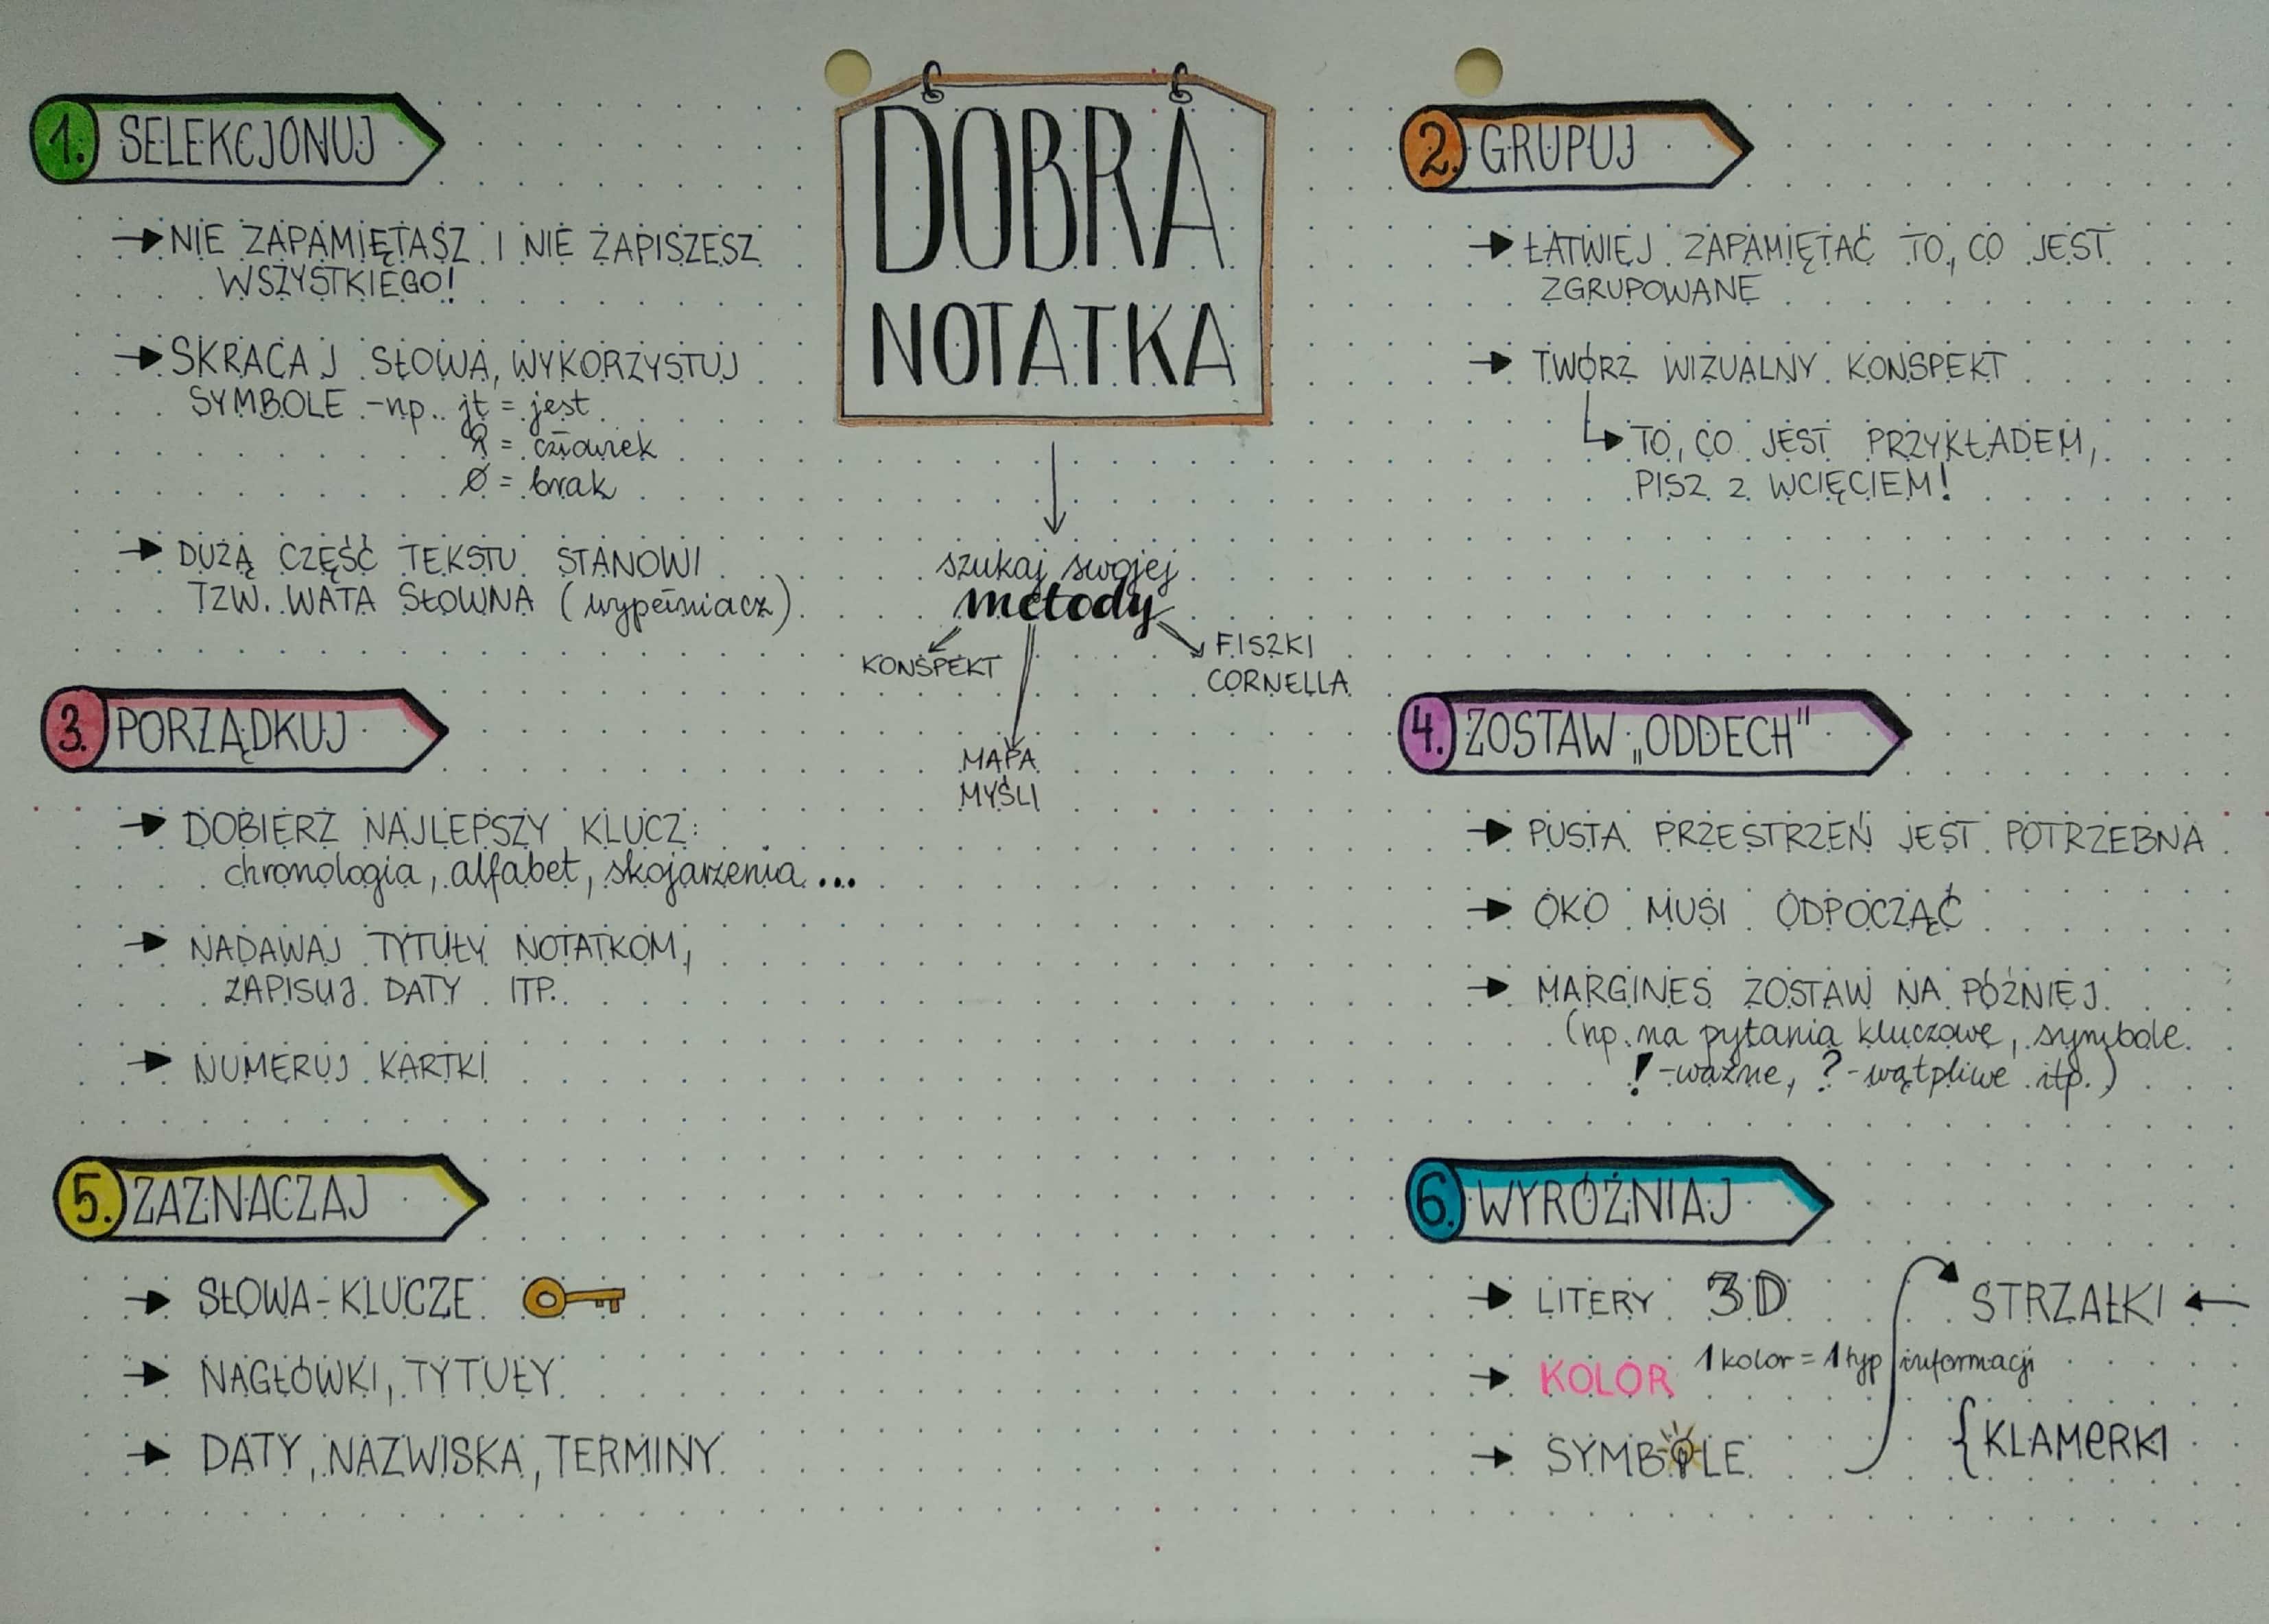 DOBRA
NOTATKA
szukaj swojej
metody
KONSPEKT
MAPA
MYŚLI
FISZKI
CORNELLA
1. SELEKCJONUJ
→ NIE ZAPAMIĘTASZ I NIE ZAPISZESZ
WSZYSTKIEGO!
→ SKRACAJ SŁOWA, WYKORZYSTUJ
SYMBOLE - np. jt = jest
= człowiek
Ø = brak
→ DUŻĄ CZĘŚĆ TEKSTU STANOWI
TZW. WATA SŁOWNA (wypełniacz)
2. GRUPUJ
→ ŁATWIEJ ZAPAMIĘTAĆ TO, CO JEST
ZGRUPOWANE
→ TWÓRZ WIZUALNY KONSPEKT
↳ TO, CO JEST PRZYKŁADEM,
PISZ Z WCIĘCIEM!
3. PORZĄDKUJ
→ DOBIERZ NAJLEPSZY KLUCZ:
chronologia, alfabet, skojarzenia...
→ NADAWAJ TYTUŁY NOTATKOM,
ZAPISUJ DATY ITP.
→ NUMERUJ KARTKI
4. ZOSTAW „ODDECH"
→ PUSTA PRZESTRZEŃ JEST POTRZEBNA
→ OKO MUSI ODPOCZĄĆ
→ MARGINES ZOSTAW NA PÓŹNIEJ
(np. na pytania kluczowe, symbole
! - ważne, ? - wątpliwe itp.)
5. ZAZNACZAJ
→ SŁOWA-KLUCZE
→ NAGŁÓWKI, TYTUŁY
→ DATY, NAZWISKA, TERMINY
6. WYRÓŻNIAJ
→ LITERY 3D
→ KOLOR 1 kolor = 1 typ informacji
→ SYMBOLE
STRZAŁKI ←
{ KLAMERKI